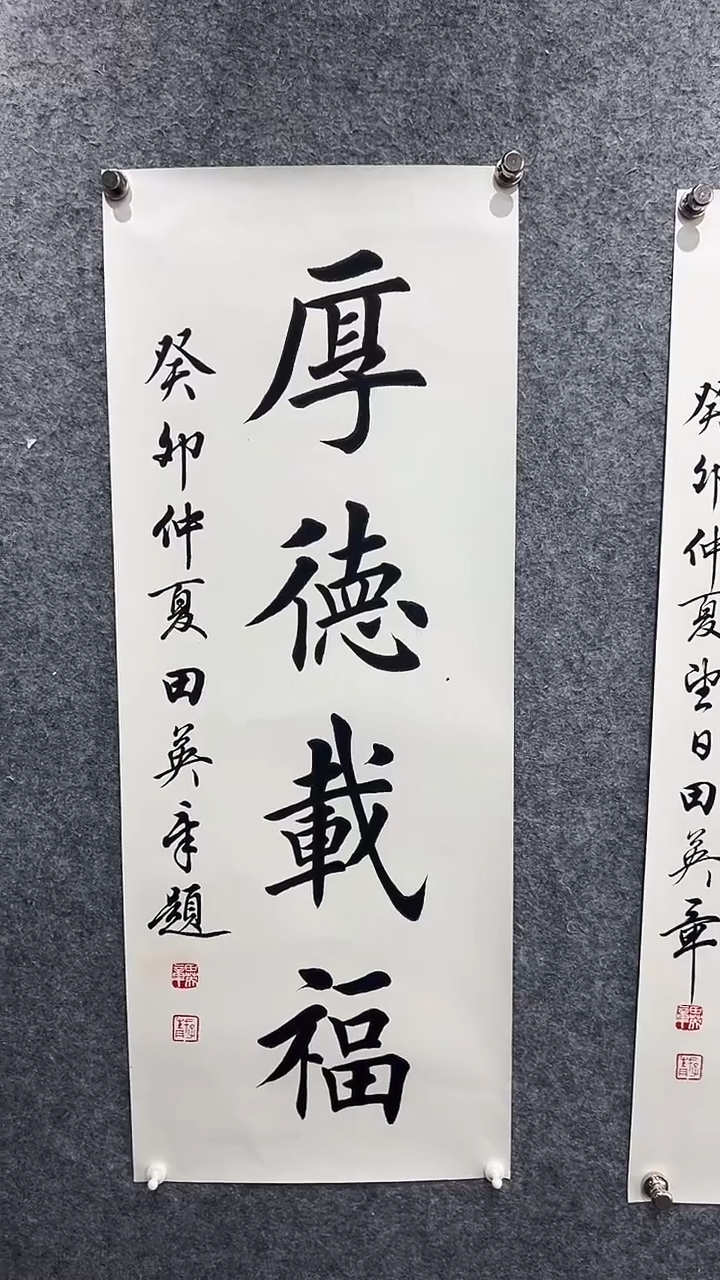 厚德載福
癸卯仲夏田英章題
癸卯仲夏望日田英章